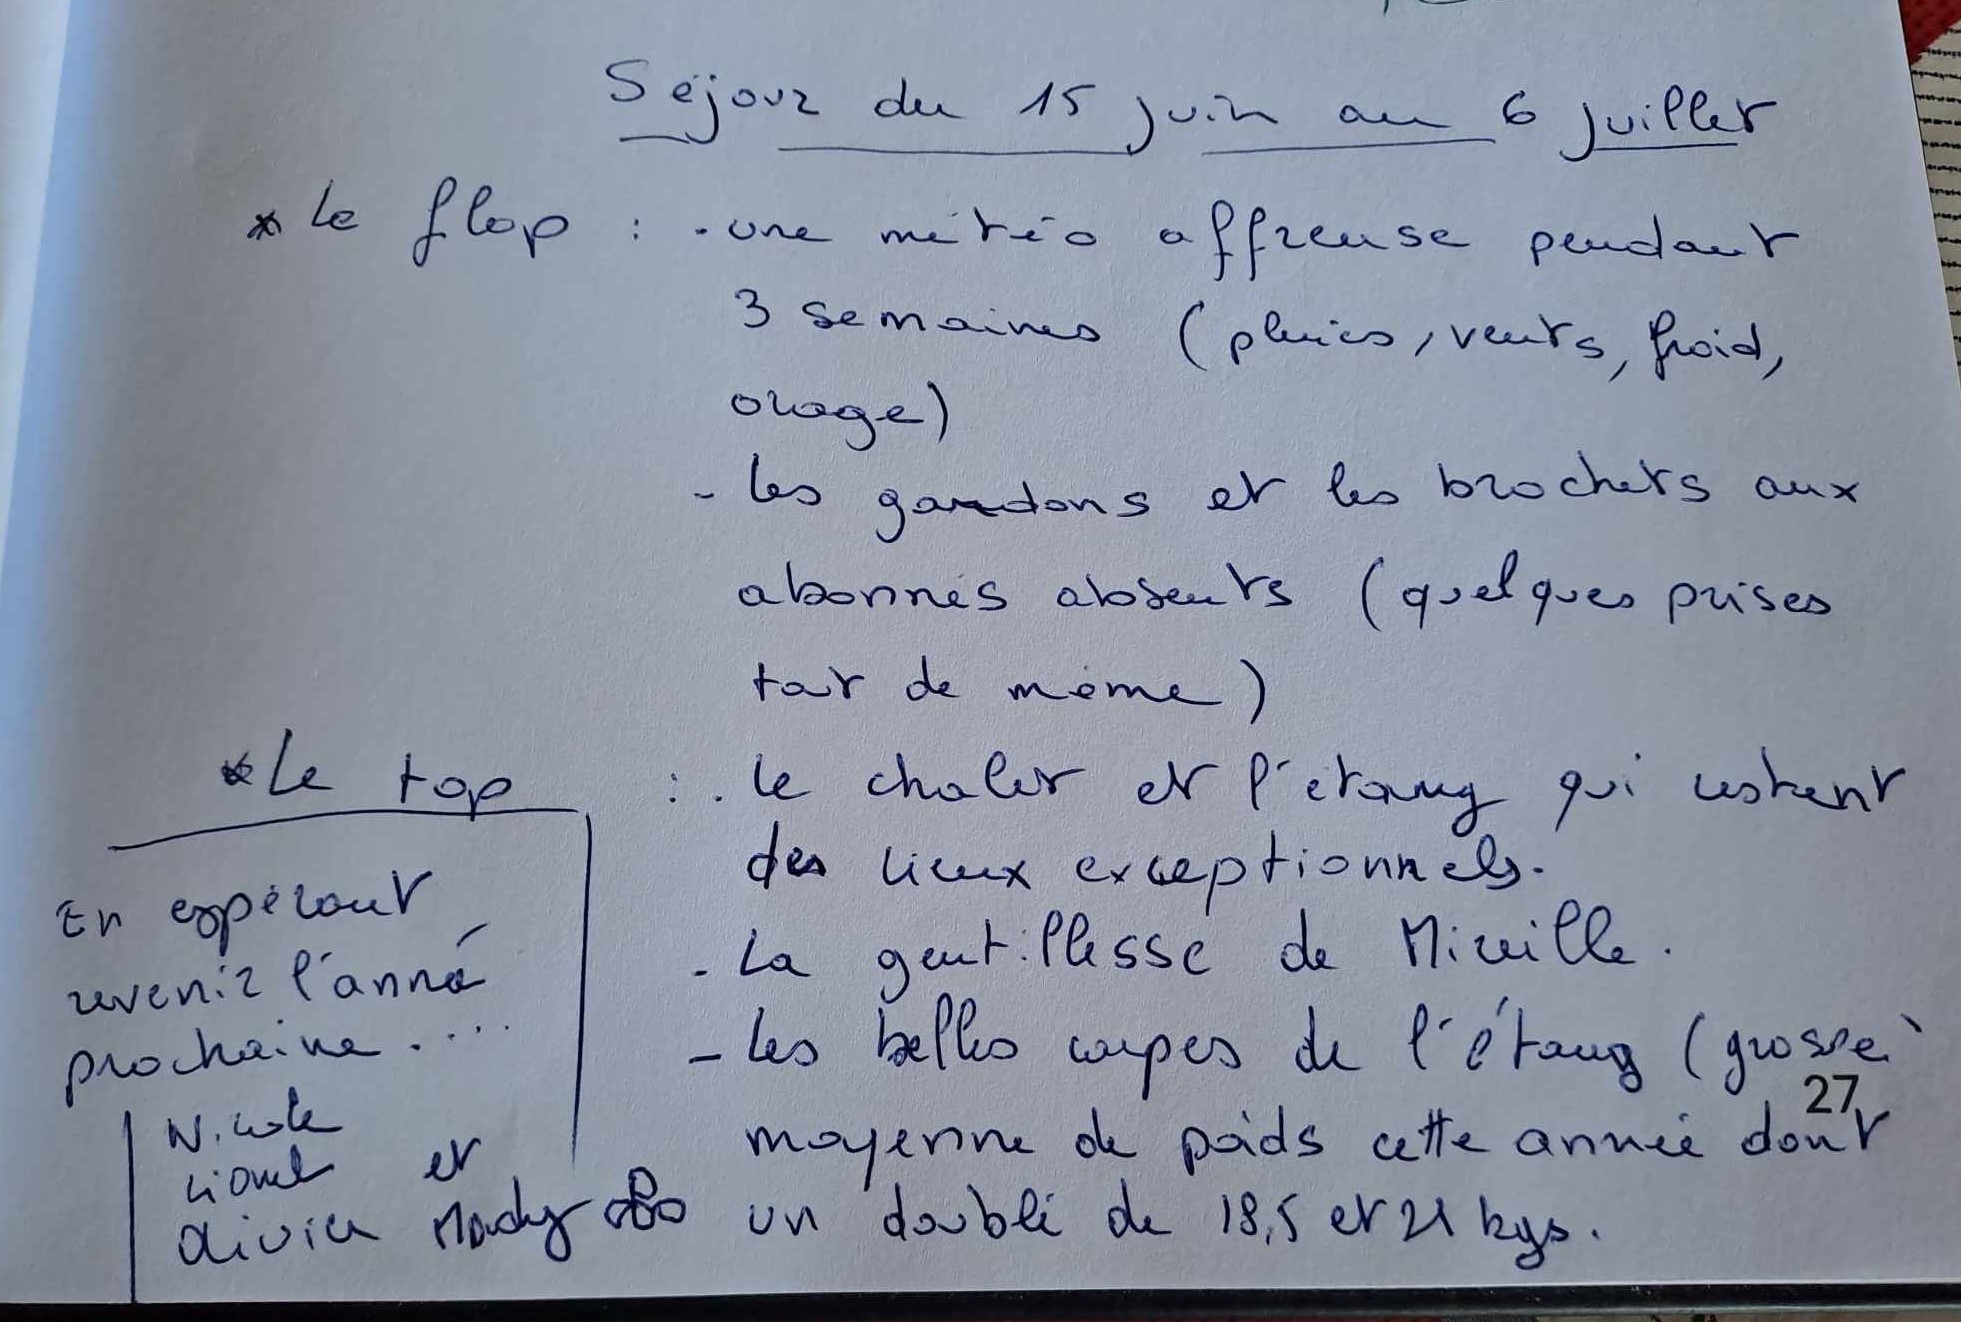 Séjour du 15 juin au 6 juillet
* Le flop : - une météo affreuse pendant
3 semaines (pluies, vents, froid,
orage)
- Les gardons et les brochets aux
abonnés absents (quelques prises
tout de même)
* Le top : - Le chalet et l'étang qui restent
des lieux exceptionnels.
- La gentillesse de Mireille.
- Les belles carpes de l'étang (grosse
moyenne de poids cette année dont
un doublé de 18,5 et 21 kgs.
En espérant
revenir l'année
prochaine....
Nicole
Lionel et
Olivier Mandy
27